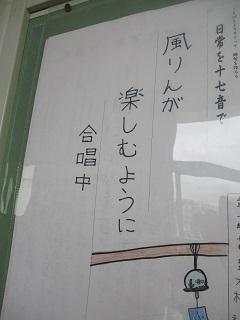 日常を十七音で
風りんが
楽しむように
合唱中